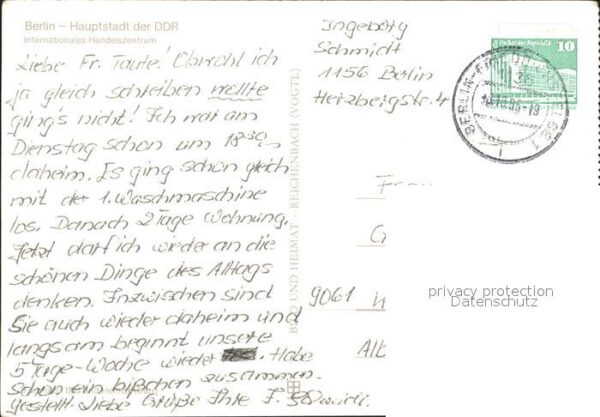 Berlin – Hauptstadt der DDR
Internationales Handelszentrum
Liebe Fr. Taute! Obwohl ich
ja gleich schreiben wollte
ging's nicht! Ich war am
Dienstag schon um 18³⁰
daheim. Es ging schon gleich
mit der 1. Waschmaschine
los. Danach 2 Tage Wohnung.
Jetzt darf ich wieder an die
schönen Dinge des Alltags
denken. Inzwischen sind
Sie auch wieder daheim und
langsam beginnt unsere
5 Tage-Woche wieder. Habe
schon ein bißchen zusammen-
gestellt. Liebe Grüße Ihre I.
BILD UND HEIMAT · REICHENBACH (VOGTL)
Ingeborg
Schmidt
1156 Berlin
Herzbergstr. 4
Palast der Republik 10
BERLIN
F
G
9061
Alt
privacy protection
Datenschutz